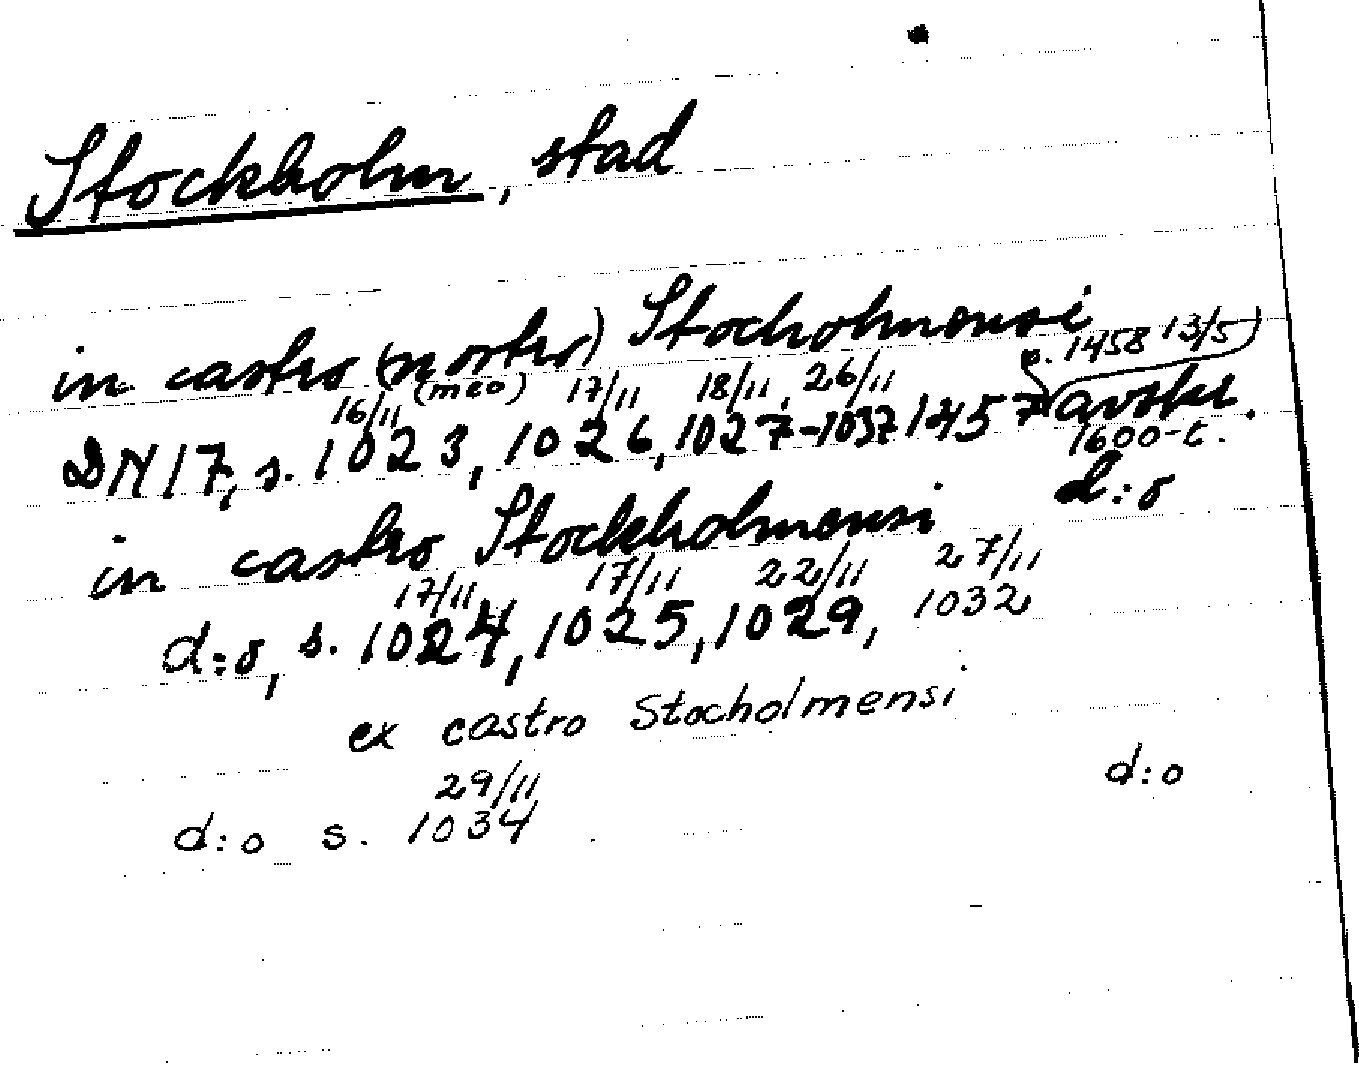 Stockholm, stad
in castro (nostro) Stocholmensi
(meo)
16/11 17/11 18/11, 26/11 p. 1458 13/5)
DN 17, s. 1023, 1026, 1027-1037 1457 avskr.
1600-t.
in castro Stockholmensi d:o
17/11 17/11 22/11 27/11
d:o, s. 1024, 1025, 1029, 1032
ex castro Stocholmensi
29/11 d:o
d:o s. 1034